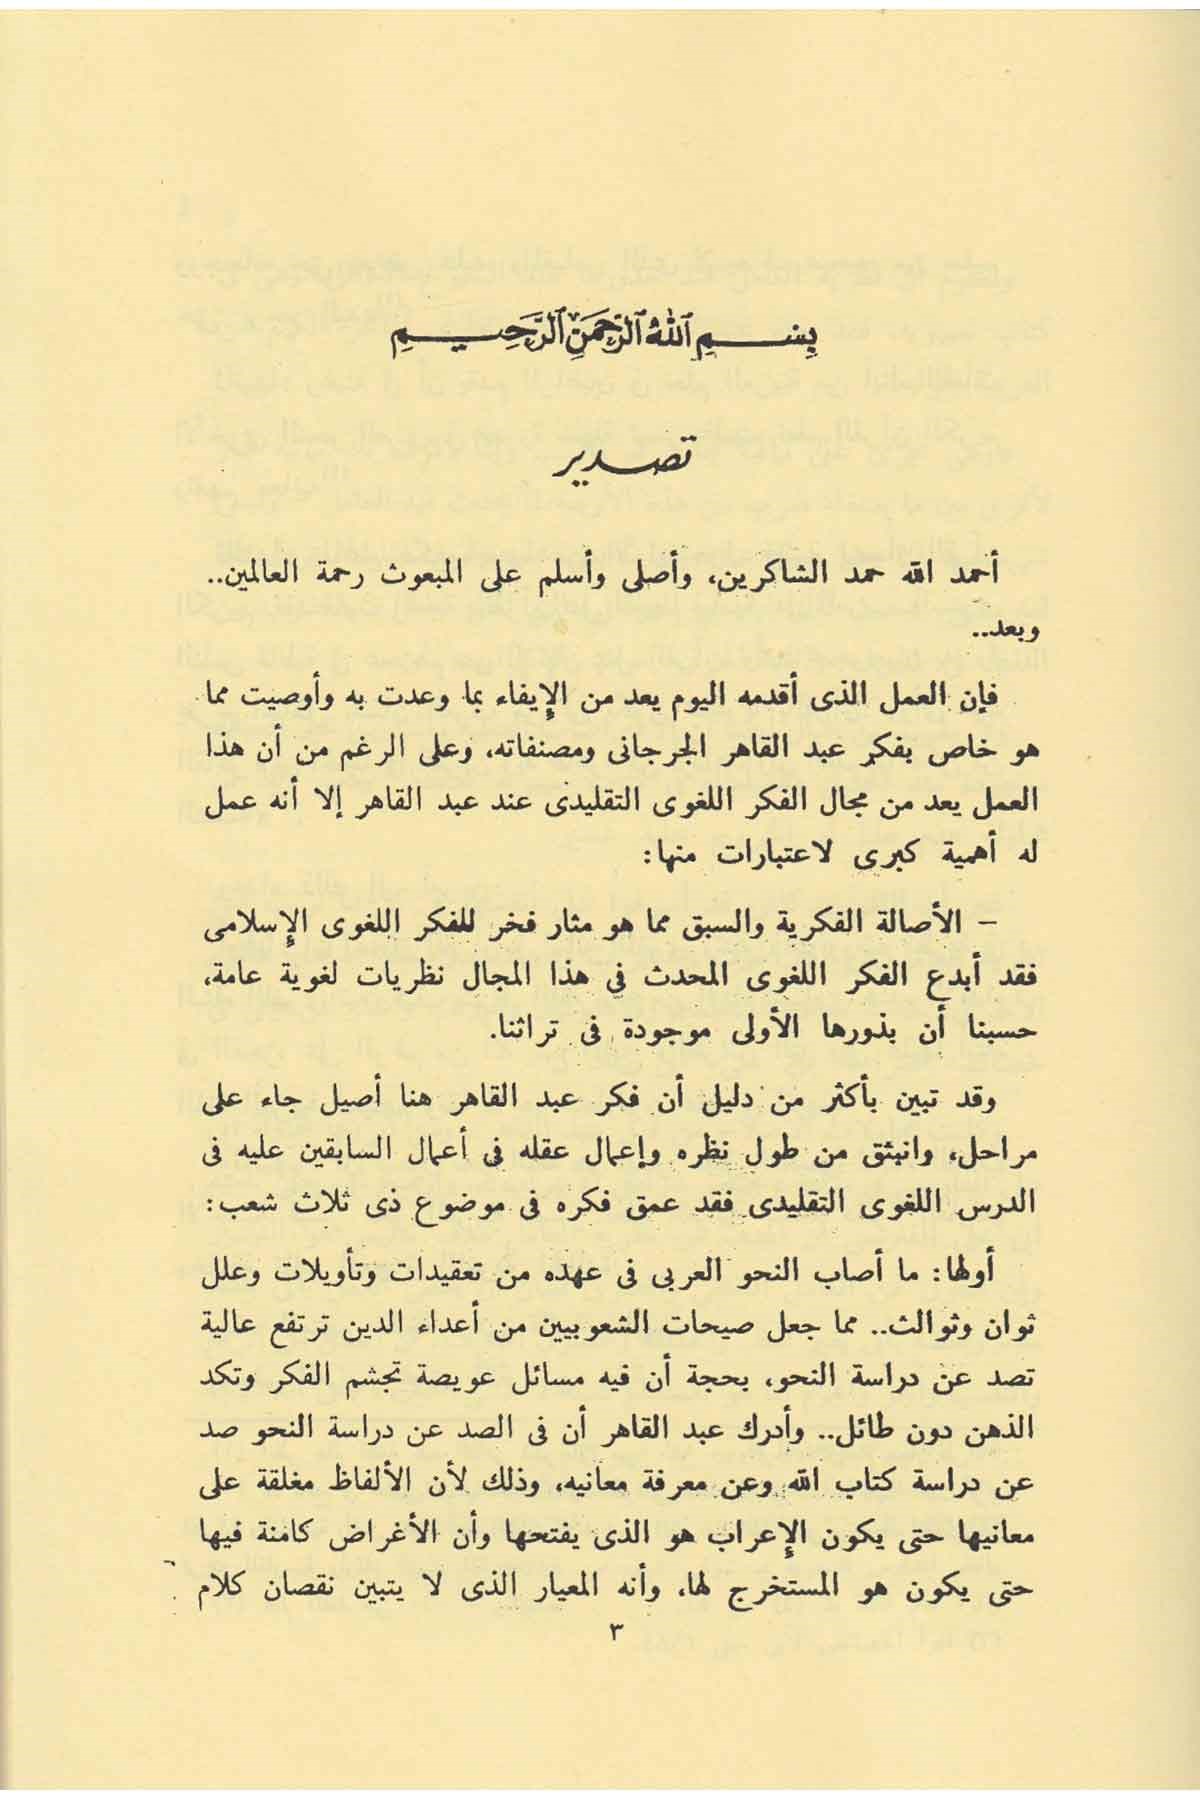 بِسْمِ اللَّهِ الرَّحْمَنِ الرَّحِيمِ
تصدير
أحمد الله حمد الشاكرين، وأصلى وأسلم على المبعوث رحمة العالمين..
وبعد..
فإن العمل الذى أقدمه اليوم يعد من الإيفاء بما وعدت به وأوصيت مما
هو خاص بفكر عبد القاهر الجرجانى ومصنفاته، وعلى الرغم من أن هذا
العمل يعد من مجال الفكر اللغوى التقليدى عند عبد القاهر إلا أنه عمل
له أهمية كبرى لاعتبارات منها:
– الأصالة الفكرية والسبق مما هو مثار فخر للفكر اللغوى الإسلامى
فقد أبدع الفكر اللغوى المحدث فى هذا المجال نظريات لغوية عامة،
حسبنا أن بذورها الأولى موجودة فى تراثنا.
وقد تبين بأكثر من دليل أن فكر عبد القاهر هنا أصيل جاء على
مراحل، وانبثق من طول نظره وإعمال عقله فى أعمال السابقين عليه فى
الدرس اللغوى التقليدى فقد عمق فكره فى موضوع ذى ثلاث شعب:
أولها: ما أصاب النحو العربى فى عهده من تعقيدات وتأويلات وعلل
ثوان وثوالث.. مما جعل صيحات الشعوبيين من أعداء الدين ترتفع عالية
تصد عن دراسة النحو، بحجة أن فيه مسائل عويصة تجشم الفكر وتكد
الذهن دون طائل.. وأدرك عبد القاهر أن فى الصد عن دراسة النحو صد
عن دراسة كتاب الله وعن معرفة معانيه، وذلك لأن الألفاظ مغلقة على
معانيها حتى يكون الإعراب هو الذى يفتحها وأن الأغراض كامنة فيها
حتى يكون هو المستخرج لها، وأنه المعيار الذى لا يتبين نقصان كلام
٣